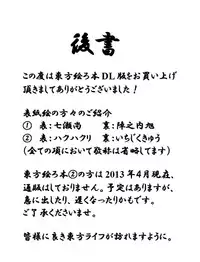 後書
この度は東方絵ろ本DL版をお買い上げ
頂きましてありがとうございました!
表紙絵の方々のご紹介
① 表:七瀬尚 裏:陣之内旭
② 表:ハクハクリ 裏:いちじくきゅう
(全ての項において敬称は省略してます)
東方絵ろ本②の方は2013年4月現在、
通販はしておりません。予定はありますが、
急に出したり、遅くなったりかもです。
ご了承くださいませ。
皆様に良き東方ライフが訪れますように。